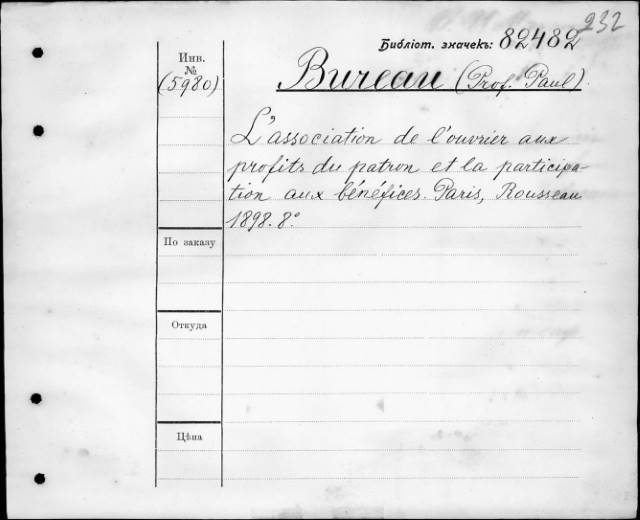 232
Библіот. значекъ: 82482
Инв.
№
(5980)
Bureau (Prof. Paul).
L'association de l'ouvrier aux
profits du patron et la participa-
tion aux bénéfices. Paris, Rousseau
1898. 8º.
По заказу
Откуда
Цѣна